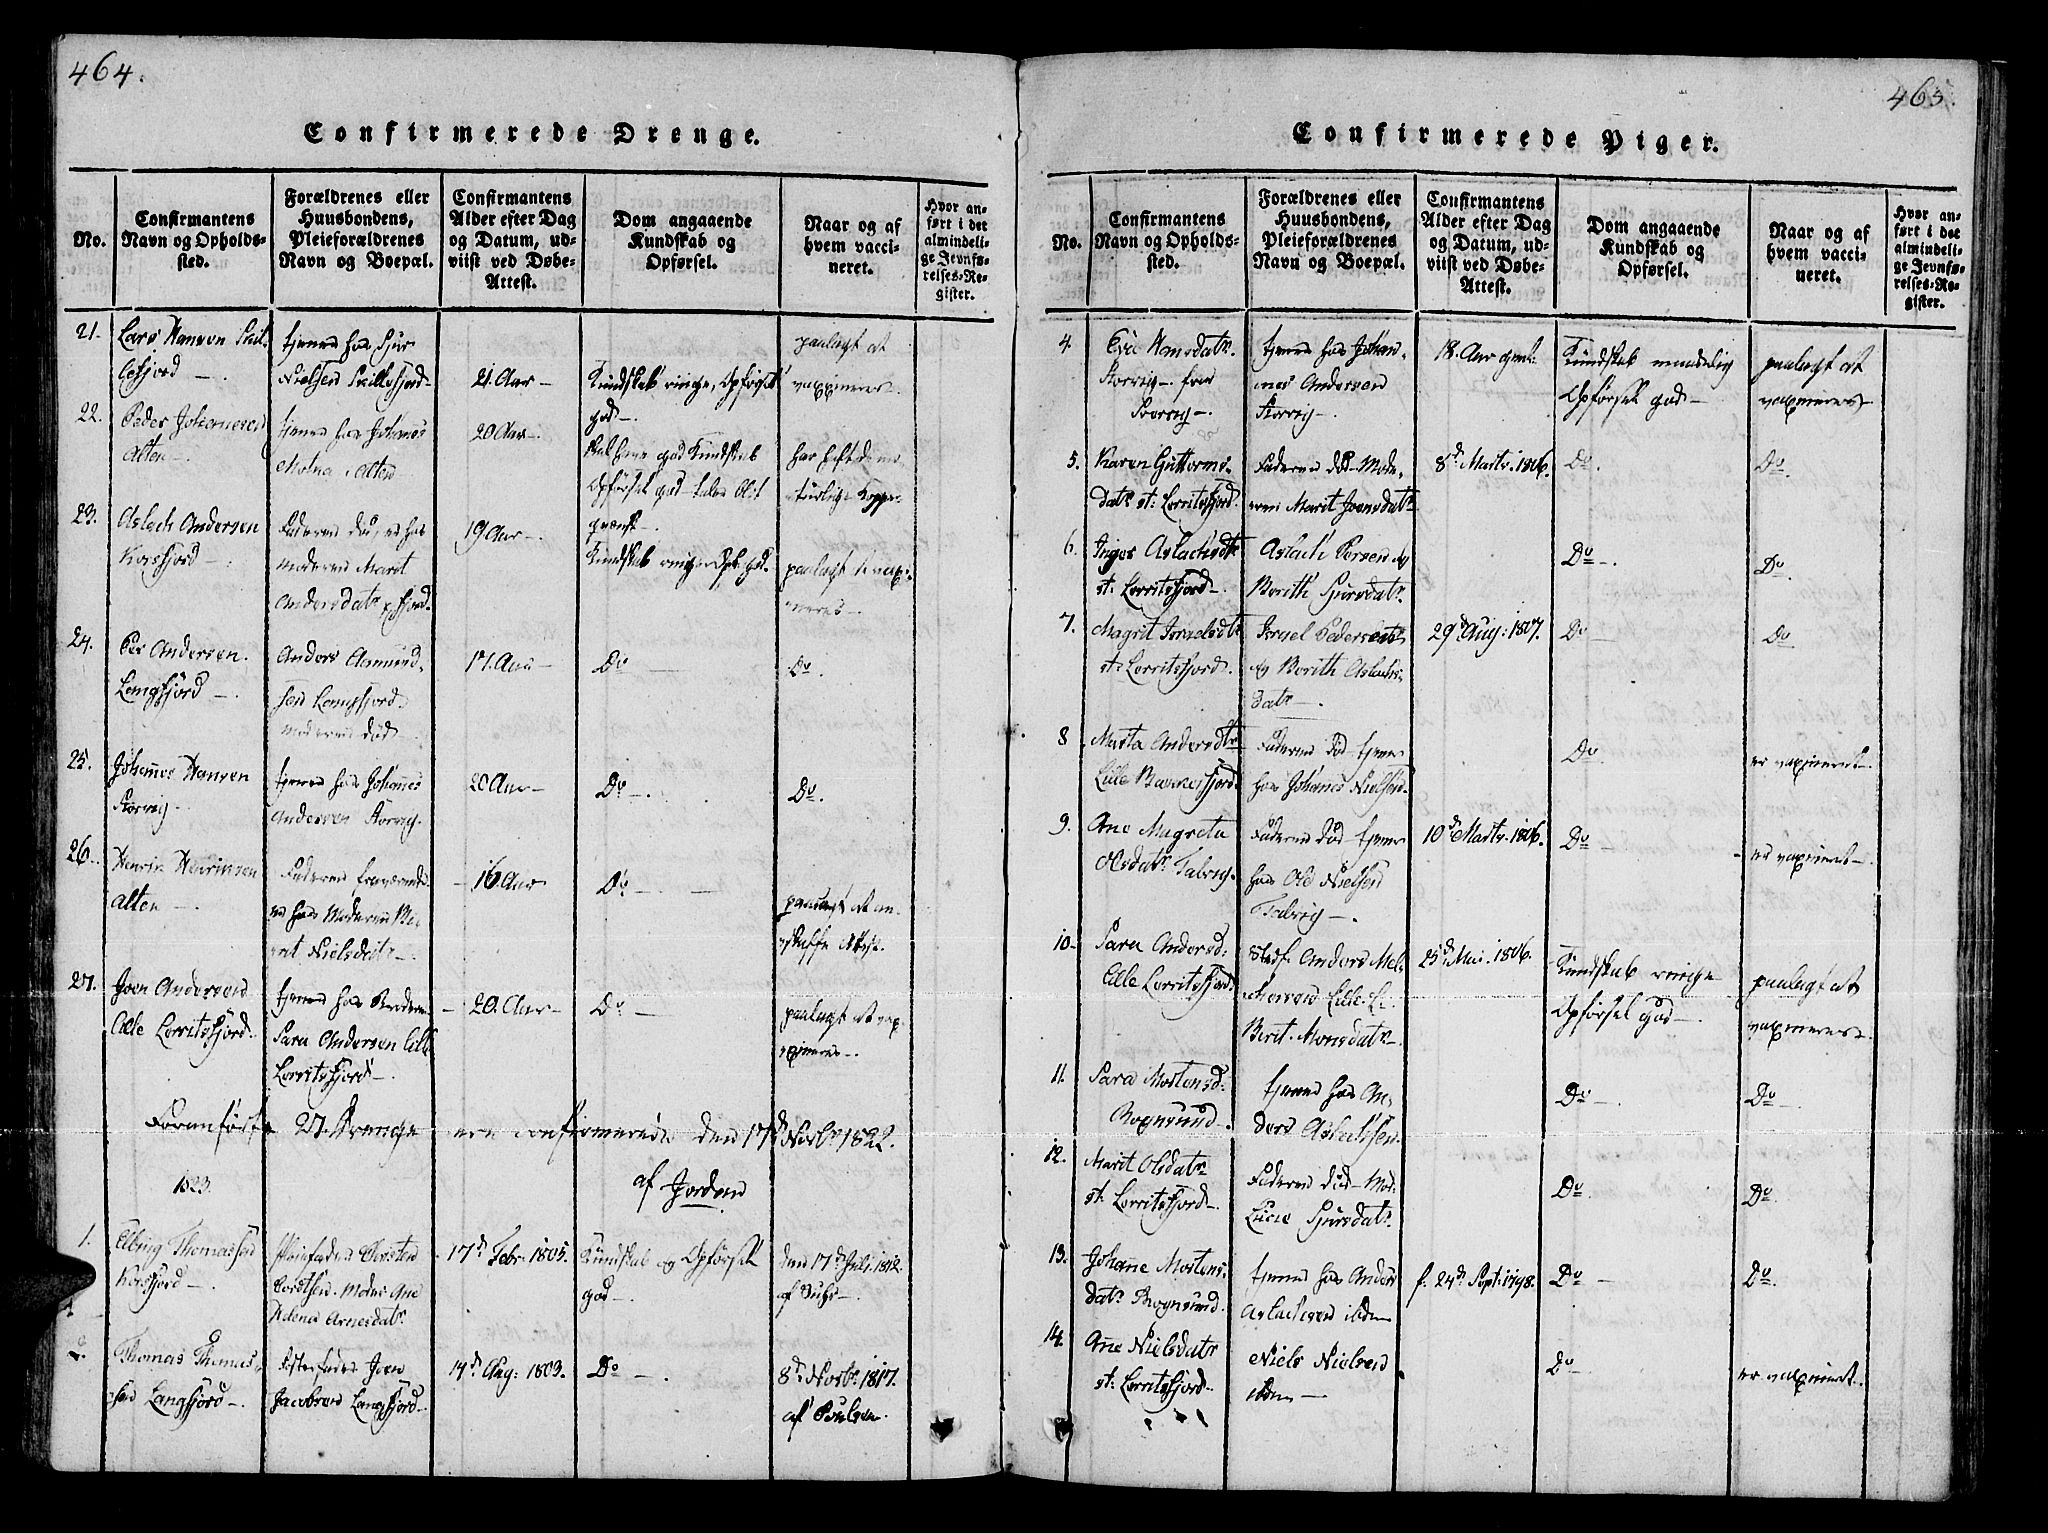 464.
Confirmerede Drenge.
No.
Confirmantens
Navn og Opholds-
sted.
Forældrenes eller
Huusbondens,
Pleieforældrenes
Navn og Boepæl.
Confirmantens
Alder efter Dag
og Datum, ud-
viist ved Døbe-
Attest.
Dom angaaende
Kundskab og
Opførsel.
Naar og af
hvem vacci-
neret.
Hvor an-
ført i det
almindeli-
ge Jevnfø-
relses-Re-
gister.
21.
Lars Hansen
tjener hos
Nielsen
21 Aar
Kundskab ringe, Opførsel
god
paalagt at
vaxineres
22.
Peder Johannesen
Alten
tjener hos Johannes
Alten
20 Aar
god Kundskab
Opførsel god
23.
Aslach Andersen
Korsfjord
Faderen død, er hos
Moderen Marit
Andersdatr
19 Aar
Kundskab ringe, Opf. god
paalagt
24.
Per Andersen
Langfjord
Anders Aamund-
sen Langfjord
Moderen død
17 Aar
Do
Do.
25.
Johannes Hansen
Storvig
tjener hos Johannes
Andersen Storvig
20 Aar
Do
Do.
26.
Henrik Henriksen
Alten
Faderen fraværende
er hos Moderen Be-
ret Nielsdatr
16 Aar
Do
paalagt at an-
skaffe Attest.
27.
Joen Andersen
Lille Lerritsfjord
tjener hos Broderen
Lars Andersen Lille
Lerritsfjord
20. Aar
Do
paalagt at vax-
ineres
Foranførte 27. Drenge ere confirmerede den 17d Novbr 1822.
af Jordan
1823.
1.
Thomassen
Korsfjord
Pleiefader
Moder Ane
Helena Arnesdatr
17d Febr. 1805.
Kundskab og Opførsel
god
den 17d Juli 1812.
af
2.
Thomas Thomas-
sen Langfjord
Joen
Jacobsen Langfjord
14d Aug: 1803.
Do
8d Novbr. 1817.
af Poulsen
465.
Confirmerede Piger.
No.
Confirmantens
Navn og Opholds-
sted.
Forældrenes eller
Huusbondens,
Pleieforældrenes
Navn og Boepæl.
Confirmantens
Alder efter Dag
og Datum, ud-
viist ved Døbe-
Attest.
Dom angaaende
Kundskab og
Opførsel.
Naar og af
hvem vacci-
neret.
Hvor an-
ført i det
almindeli-
ge Jevnfø-
relses-Re-
gister.
4
Hansdatr.
Storvig
tjener hos Johan-
nes Andersen
Storvig
18. Aar gml.
Kundskab maadelig
Opførsel god
paalagt at
vaxineres
5.
Karen Guttorms-
datr. st: Lerritsfjord.
Faderen død Mode-
ren Marit Joensdatr
8d Marts 1806.
Do.
Do
6.
Inger Aslachsdtr
st. Lerritsfjord
Aslach Persen og
Berith Sjursdatr
Do
Do
7.
Magrit Israelsdtr
st. Lerritsfjord.
Israel Pedersen
og Berith Aslachs-
datr
29d Aug: 1807.
Do
Do
8
Marta Andersdtr
Lille
Faderen død tjener
hos Johannes Nielsen
Do
er vaxineret
9.
Ane Magreta
Olsdatr. Talvig.
Faderen død tjener
hos Ole Nielsen
Talvig
10d Marts 1806.
Do
er vaxineret
10
Sara Andersd:
Lille Lerritsfjord
Anders
Lille L:
Berit Monsdatr
25d Mai. 1806.
Kundskab ringe
Opførsel god
paalagt at
vaxineres
11.
Sara Mortensd:
Rognsund
tjener hos An-
ders Aslachsen
Do
Do
12.
Marit Olsdatr
st: Lerritsfjord
Faderen død Mod:
Lucie Sjursdatr
Do
Do
13.
Johanne Mortens-
datr. Rognsund
tjener hos Anders
Aslachsen ibdm
f. 24d Sept. 1798.
Do
Do.
14.
Ane Nielsdatr
st: Lerritsfjord
Niels Nielsen
ibdm
Do
er vaxineret